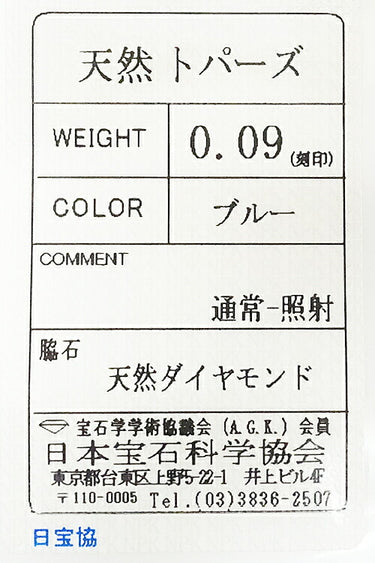 天然トパーズ
WEIGHT 0.09 (刻印)
COLOR ブルー
COMMENT
通常-照射
脇石
天然ダイヤモンド
宝石学学術協議会 (A.G.K.) 会員
日本宝石科学協会
東京都台東区上野5-22-1 井上ビル4F
〒110-0005 Tel.(03)3836-2507
日宝協